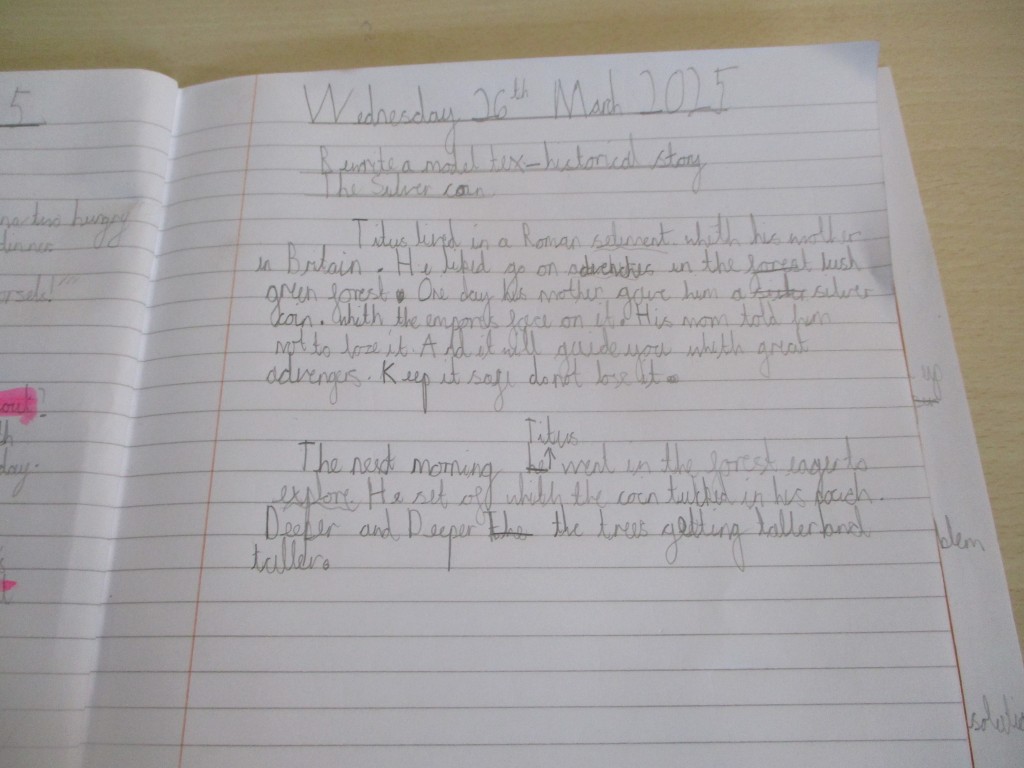 5
na hungry
dinner
orsels!"
out?
day.
Wednesday 26th March 2025
Rewrite a model tex-historical story
The Silver coin
Titus livid in a Roman setiment whith his mother
in Britain. He likid go on advenchis in the forest lush
green forest. One day his mother gave him a silver
coin. whith the empors face on it. His mom told him
not to lose it. And it will guide you whith great
advengers. Keep it safe do not lose it.
Titus
The next morning he went in the forest eager to
explore He set off whith the coin tukked in his pouch.
Deeper and Deeper The the trees getting taller and
taller.
blem